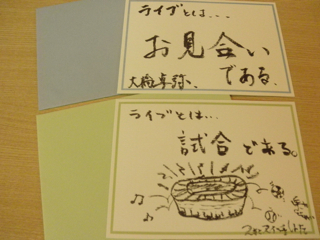 ライブとは、、、
お見合い
である。
ライブとは…
試合である。